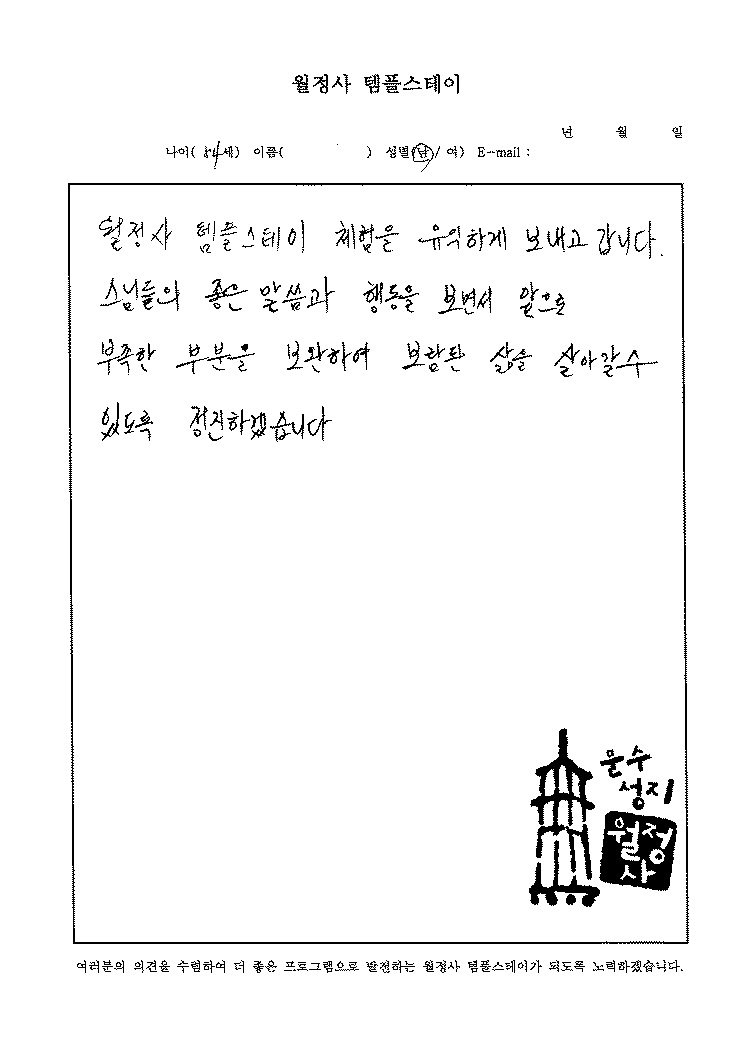 월정사 템플스테이
년 월 일
나이( 54세) 이름( ) 성별(남/ 여) E-mail :
월정사 템플스테이 체험을 유익하게 보내고 갑니다.
스님들의 좋은 말씀과 행동을 보면서 앞으로
부족한 부분을 보완하여 보람된 삶을 살아갈수
있도록 정진하겠습니다
문수
성지
월정
사
여러분의 의견을 수렴하여 더 좋은 프로그램으로 발전하는 월정사 템플스테이가 되도록 노력하겠습니다.